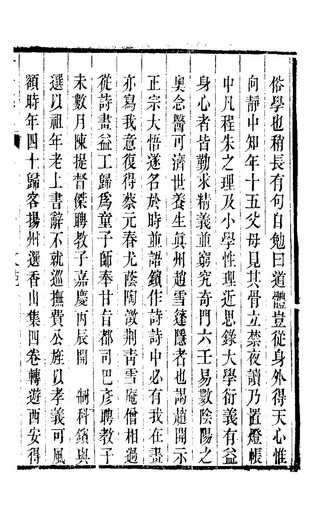 俗學也稍長有句自勉曰道體豈從身外得天心惟
向靜中知年十五父母見其骨立禁夜讀乃置燈帳
中凡程朱之理及小學性理近思錄大學衍義有益
身心者皆勤求精義並窮究奇門六壬易數陰陽之
奧念醫可濟世養生真州趙雪篷隱者也謁趙開示
正宗大悟遂名於時並語鑌作詩詩中必有我在畫
亦寫我意復得蔡元春尤蔭陶澂荆青雪庵僧相過
從詩畫益工歸爲童子師奉甘旨都司巴彥聘教子
未數月陳提督傑聘教子嘉慶丙辰開 制科鎖與
選以祖年老上書辭不就巡撫費公旌以孝義可風
額時年四十歸客揚州選香山集四卷轉遊西安得